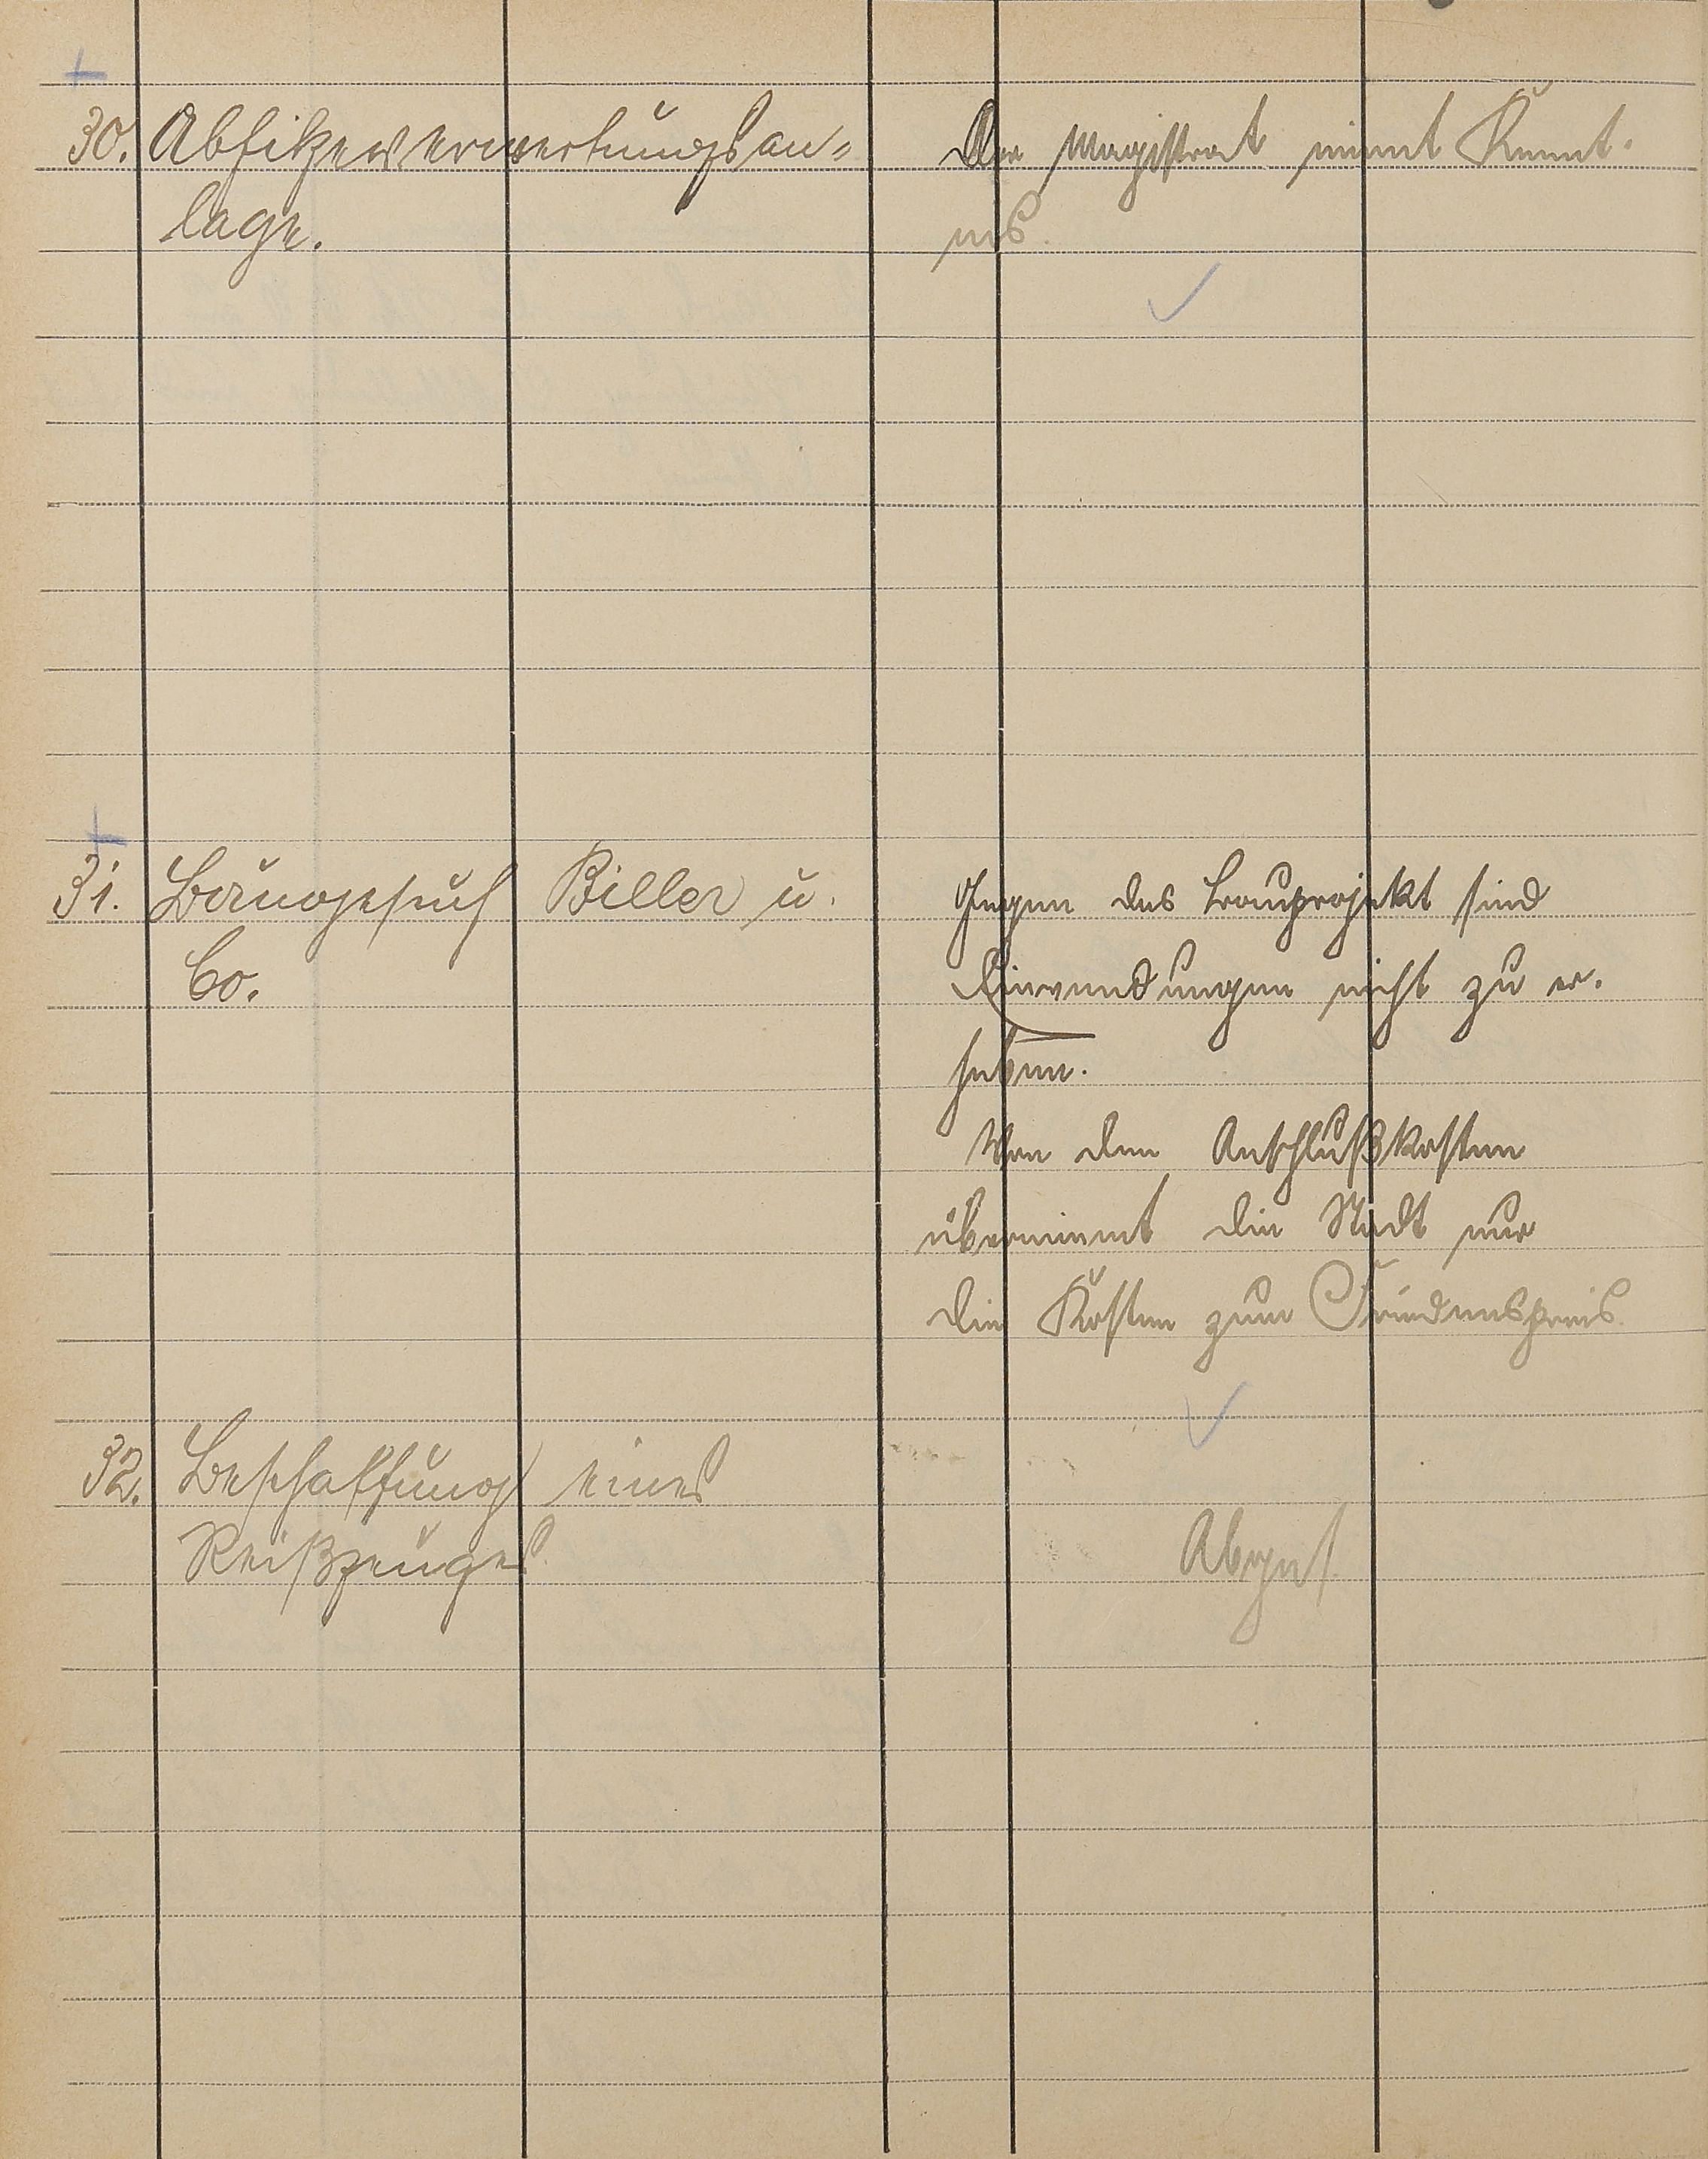 30. Abhitzeverwertungsan=
lage.
Der Magistrat nimmt Kennt-
nis.
31. Baugesuch Biller u.
Co.
Gegen das Bauprojekt sind
Einwendungen nicht zu er-
heben.
Von den Anschlußkosten
übernimmt die Stadt nur
die Kosten zum Friedenspreis.
32. Beschaffung eines
Reißzeuges.
Abges.